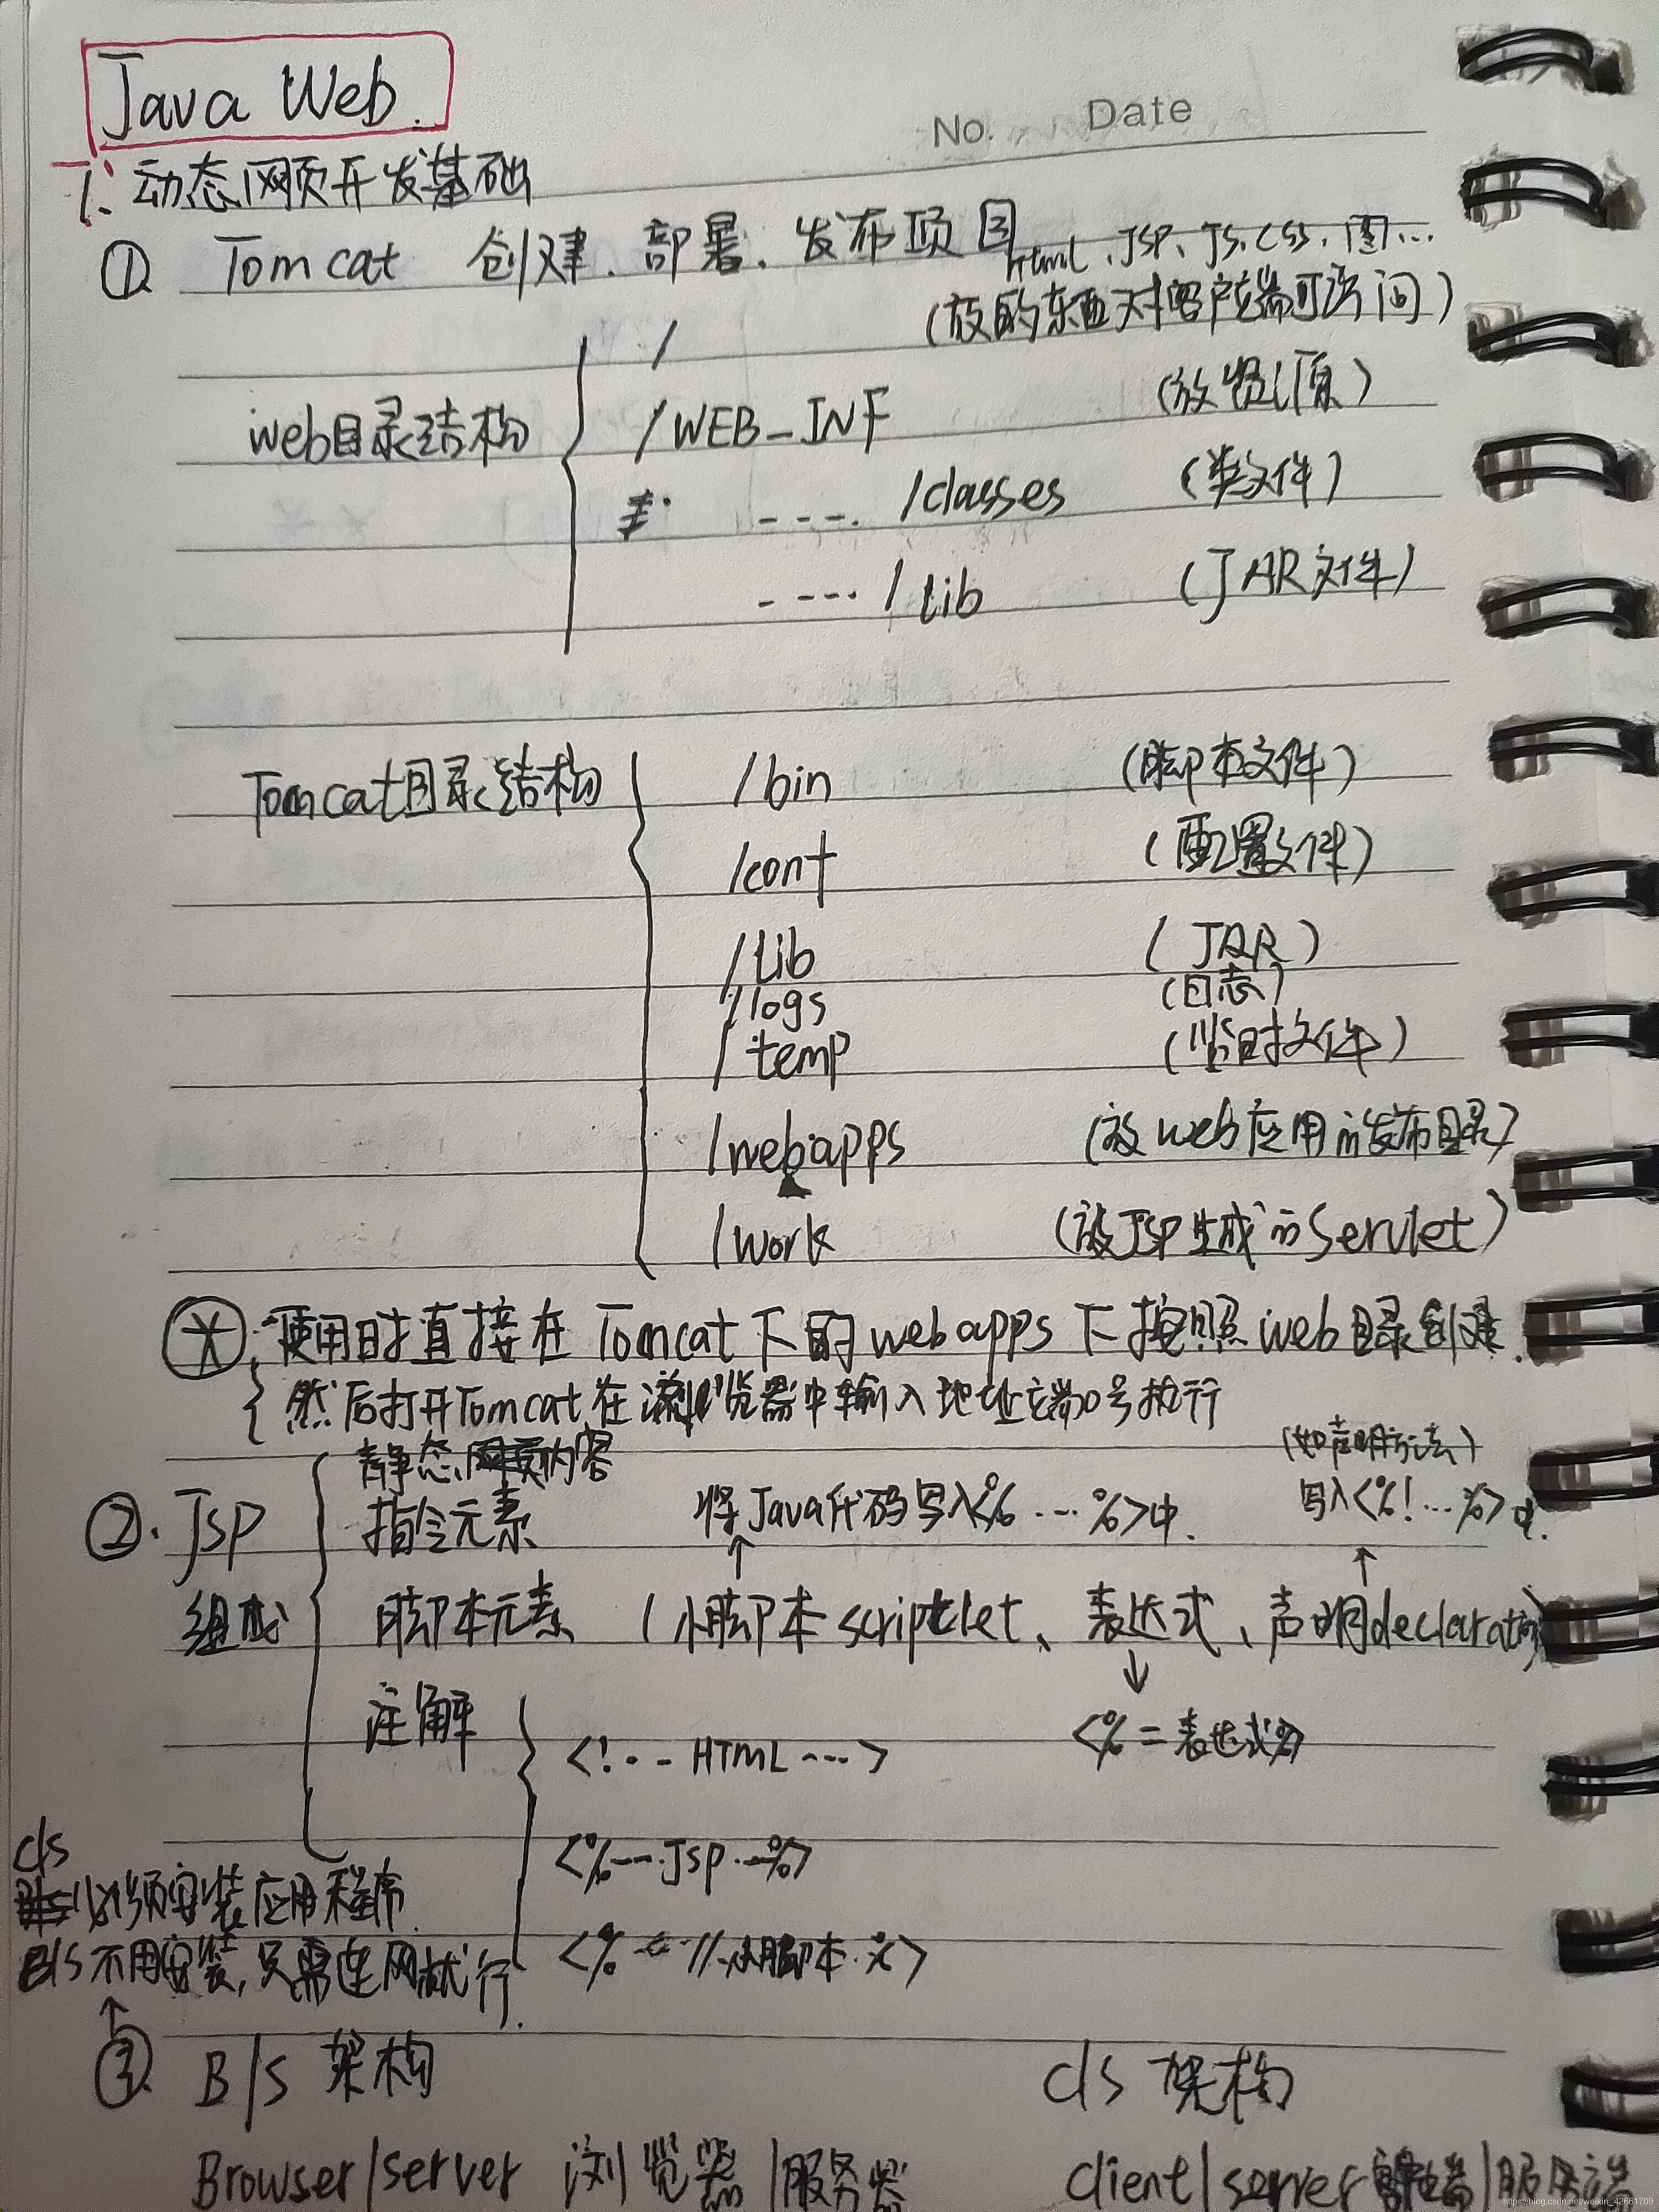 Java Web.
No. Date
1. 动态网页开发基础
① Tomcat 创建、部署、发布项目
html、JSP、JS、CSS、图...
/ (放的东西对客户端可访问)
web目录结构 /WEB_INF (放资源)
----. /classes (类文件)
----. /lib (JAR文件)
Tomcat目录结构 /bin (脚本文件)
/conf (配置文件)
/lib (JAR)
/logs (日志)
/temp (临时文件)
/webapps (放web应用的发布目录)
/work (放JSP生成的Servlet)
使用时直接在Tomcat下的webapps下按照web目录创建.
然后打开Tomcat,在浏览器中输入地址端口号执行
静态网页内容 (如声明方法)
②. JSP 指令元素 将Java代码写入<% ... %>中. 写入<%!...%>中.
组成 脚本元素 (小脚本scriptlet、表达式、声明declaration)
注解 <!-- HTML ---> <%=表达式%>
C/S <%--- JSP --%>
必须安装应用程序.
B/S不用安装,只需连网就行. <% //.脚本.%>
③. B/S 架构 C/S 架构
Browser/server 浏览器/服务器 client/server 客户端/服务端
https://blog.csdn.net/weixin_42661709